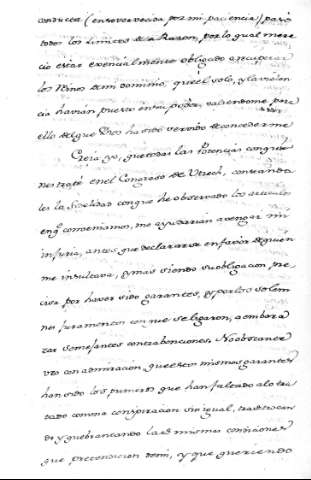 conducta (ensovervecida por mi paciencia) pasò
todos los limites de la Razon, por lo qual mere
cio esencialmente obligado a recuperar
los Reinos de mi dominio, que el solo, y la violen
cia havian puesto en su poder, valiendome por
ello del que Dios ha sido servido de concederme
Creìa yo, que todas las Potencias con quie
nes tratè en el Congreso de Utrech, contando
les la fidelidad con que he observado los articulos
en q.e combeniamos, me ayudarian a vengar mi
injuria, antes que declararse en favor de quien
me insultava, y mas siendo su obligacion pre
cisa por haver sido garantes, y por los solem
nes Juramentos con que se ligaron, a embara
zar semejantes contravenciones. No obstante
veo con admiracion, que estos mismos garantes
han sido los primeros que han faltado a lo tra
tado con una conspiracion sin igual, trastrocan
do y quebrantando las mismas condiciones
que pretendieron de mi, y que queriendo